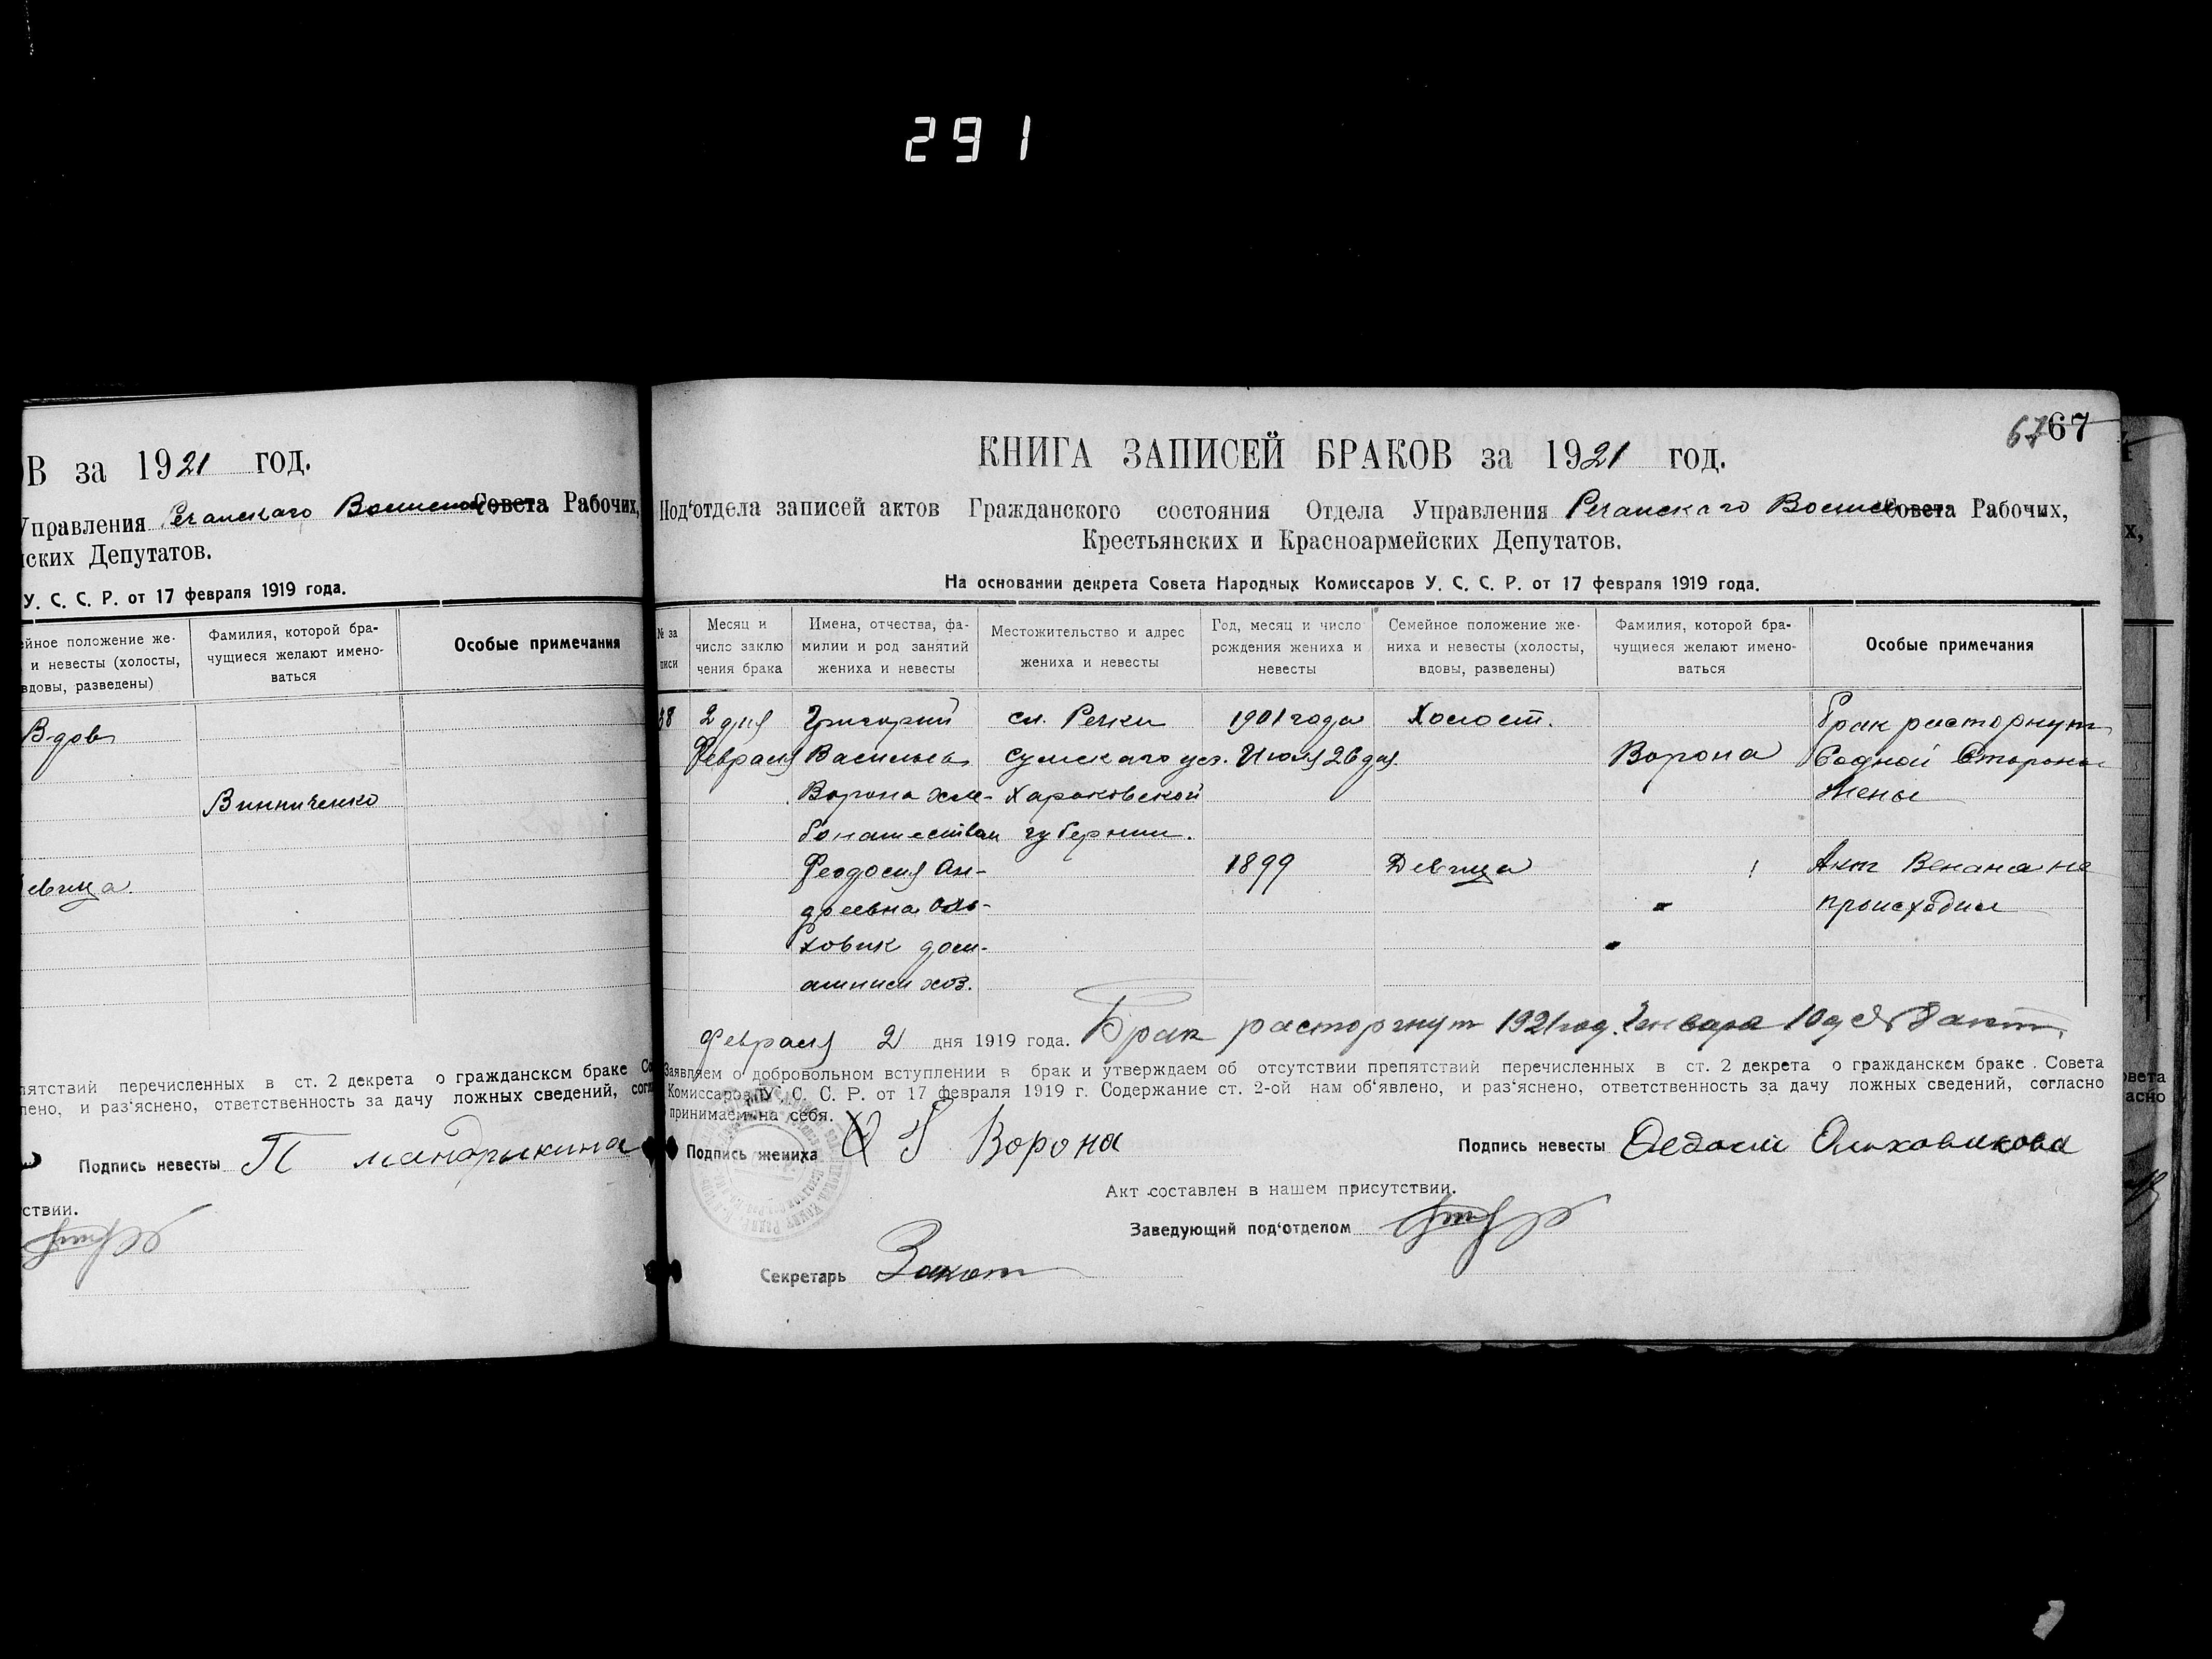 291
ОВ за 1921 год.
Управления Речанскаго Совета Рабочих,
нских Депутатов.
У. С. С. Р. от 17 февраля 1919 года.
ейное положение же-
и невесты (холосты,
вдовы, разведены)
Фамилия, которой бра-
чущиеся желают имено-
ваться
Особые примечания
Вдов
Винниченко
евица.
пятствий перечисленных в ст. 2 декрета о гражданскcм браке Со
лено, и раз‘яснено, ответственность за дачу ложных сведений, согл
Подпись невесты П Мандрыкина
ствии.
67 67
КНИГА ЗАПИСЕЙ БРАКОВ за 1921 год.
Под‘отдела записей актов Гражданского состояния Отдела Управления Речанскаго Совета Рабочих,
Крестьянских и Красноармейских Депутатов.
На основании декрета Совета Народных Комиссаров У. С. С. Р. от 17 февраля 1919 года.
№ за
писи
Месяц и
число заклю
чения брака
Имена, отчества, фа-
милии и род занятий
жениха и невесты
Местожительство и адрес
жениха и невесты
Год, месяц и число
рождения жениха и
невесты
Семейное положение же-
ниха и невесты (холосты,
вдовы, разведены)
Фамилия, которой бра-
чущиеся желают имено-
ваться
Особые примечания
38 2 дня Григорий сл. Речки 1901 года Холост. брак расторнут
Февраля Васильев Сумского уез. Июля 26 дня Ворона Содной Стороны
Ворона хле- Харьковской Жены
бопашеством губернии.
Феодосия Ан- 1899 Девица Акт Венана не
дреевна Оль- происходил
ховик дом-
ашним хоз.
Февраля 2 дня 1919 года. Брак расторгнут 1921 год. Января 10 дня 8 акт.
Заявляем о добровольном вступлении в брак и утверждаем об отсутствии препятствий перечисленных в ст. 2 декрета о гражданскcм браке. Совета
Комиссаров У. С. С. Р. от 17 февраля 1919 г. Содержание ст. 2-ой нам об‘явлено, и раз‘яснено, ответственность за дачу ложных сведений, согласно
принимаем на себя.
Подпись жениха Ворона
Подпись невесты Федосия Ольховикова
Акт составлен в нашем присутствии.
Заведующий под‘отделом
Секретарь